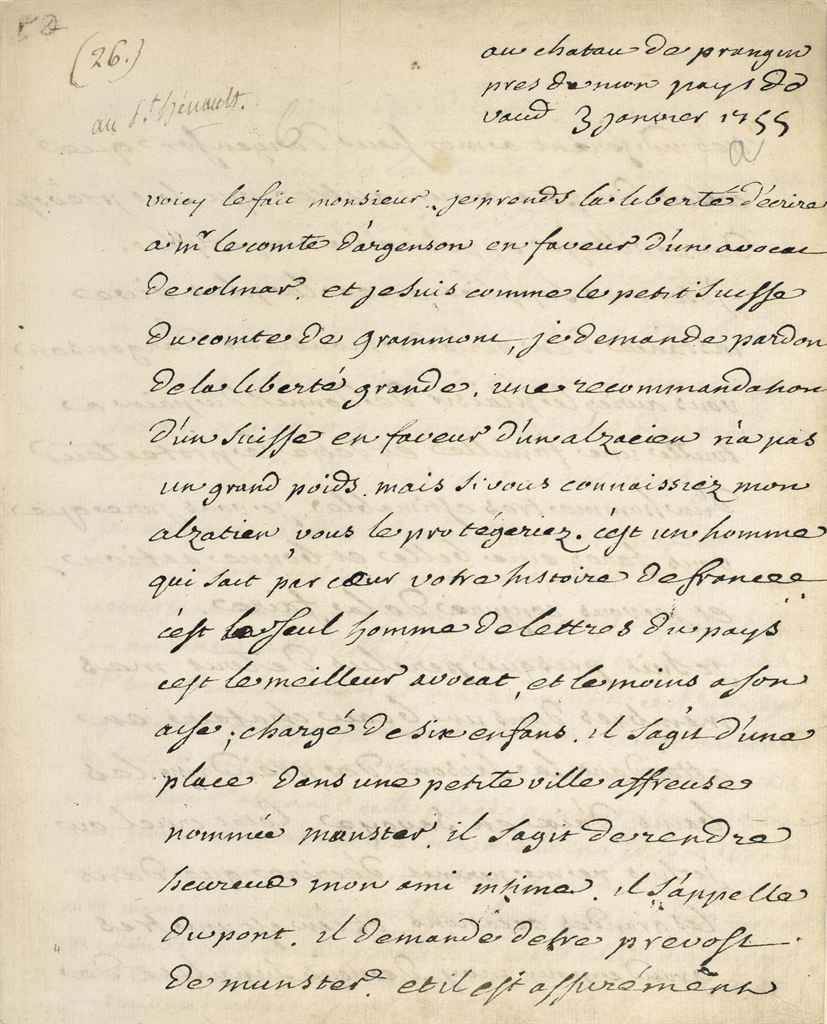 (26.)
au P.t hénault.
au chatau de prangin
pres de mon pays de
vaud 3 janvier 1755
a
voicy le fait monsieur. je prends la liberté d'écrire
a mr le comte d'argenson en faveur d'un avocat
de colmar. et je suis comme le petit suisse
du comte de grammont, je demande pardon
de la liberté grande. une recommandation
d'un suisse en faveur d'un alzacien n'a pas
un grand poids. mais si vous connaissiez mon
alzatien vous le protégeriez. c'est un homme
qui sait par cœur votre histoire de france
c'est le seul homme de lettres du pays
c'est le meilleur avocat, et le moins a son
aise; chargé de six enfans. il s'agit d'une
place dans une petite ville affreuse
nommée munster. il s'agit de rendre
heureux mon ami intime. il s'appelle
du pont. il demande detre prevost
de munster. et il est assurément